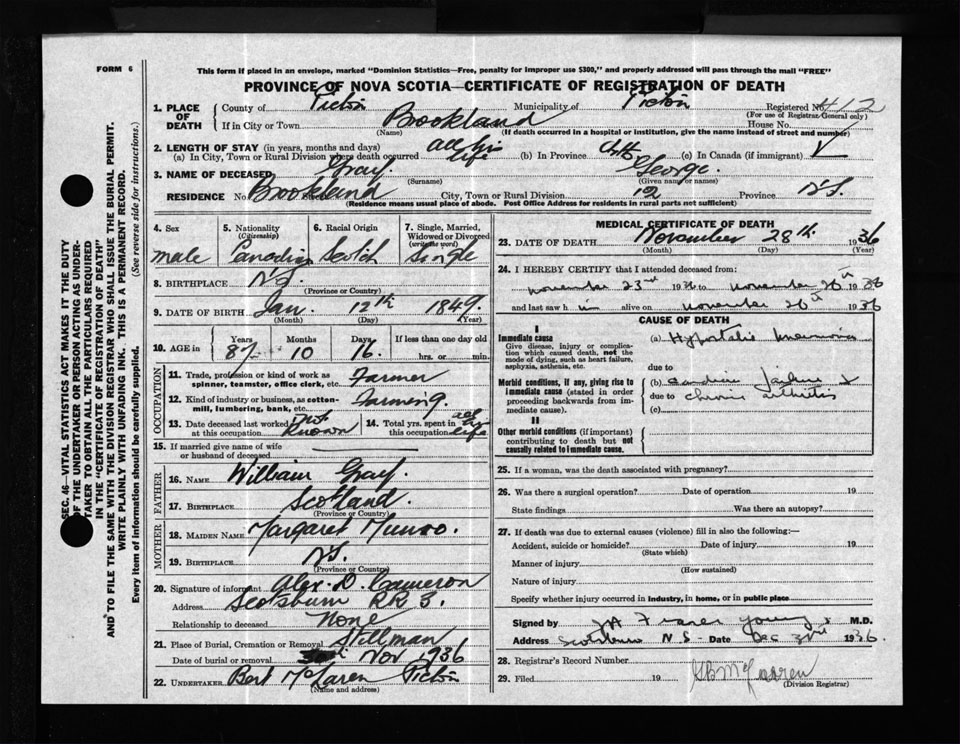 FORM 6
This form if placed in an envelope, marked "Dominion Statistics—Free, penalty for improper use $300," and properly addressed will pass through the mail "FREE"
PROVINCE OF NOVA SCOTIA—CERTIFICATE OF REGISTRATION OF DEATH
1. PLACE OF DEATH County of Pictou Municipality of Pictou Registered No. 412
(For use of Registrar General only)
If in City or Town Brookland House No.
(Name) (If death occurred in a hospital or institution, give the name instead of street and number)
2. LENGTH OF STAY (in years, months and days)
(a) In City, Town or Rural Division where death occurred all his life (b) In Province (c) In Canada (if immigrant)
3. NAME OF DECEASED Gray. George.
(Surname) (Given name or names)
RESIDENCE No. Brookland Street City, Town or Rural Division 12 Province N.S.
(Residence means usual place of abode. Post Office Address for residents in rural parts not sufficient)
4. Sex male
5. Nationality (Citizenship) Canadian
6. Racial Origin Scotch
7. Single, Married, Widowed or Divorced (write the word) Single
8. BIRTHPLACE N.S.
(Province or Country)
9. DATE OF BIRTH Jan. 12th 1849.
(Month) (Day) (Year)
10. AGE in Years 87 Months 10 Days 16. If less than one day old hrs. or min.
OCCUPATION
11. Trade, profession or kind of work as spinner, teamster, office clerk, etc. Farmer
12. Kind of industry or business, as cotton-mill, lumbering, bank, etc. Farming.
13. Date deceased last worked at this occupation Not Known
14. Total yrs. spent in this occupation all his life
15. If married give name of wife or husband of deceased
FATHER
16. NAME William Gray.
17. BIRTHPLACE Scotland.
(Province or Country)
MOTHER
18. MAIDEN NAME Margaret Munro.
19. BIRTHPLACE N.S.
(Province or Country)
20. Signature of informant Alex. D. Cameron
Address Scotsburn RR 3.
Relationship to deceased None
21. Place of Burial, Cremation or Removal Stillman
Date of burial or removal Nov 1936
22. UNDERTAKER Bert McLaren Pictou
(Name and address)
MEDICAL CERTIFICATE OF DEATH
23. DATE OF DEATH November 28th 1936
(Month) (Day) (Year)
24. I HEREBY CERTIFY that I attended deceased from:
November 23rd 1936 to November 26th 1936
and last saw him alive on November 26th 1936
CAUSE OF DEATH
I
Immediate cause
Give disease, injury or complication which caused death, not the mode of dying, such as heart failure, asphyxia, asthenia, etc.
(a) Hypostatic Pneumonia
due to
Morbid conditions, if any, giving rise to immediate cause (stated in order proceeding backwards from immediate cause).
(b) Cardiac failure &
due to chronic arthritis
(c)
II
Other morbid conditions (if important) contributing to death but not causally related to immediate cause.
25. If a woman, was the death associated with pregnancy?
26. Was there a surgical operation? Date of operation 19
State findings Was there an autopsy?
27. If death was due to external causes (violence) fill in also the following:—
Accident, suicide or homicide? Date of injury 19
(State which)
Manner of injury
(How sustained)
Nature of injury
Specify whether injury occurred in industry, in home, or in public place
Signed by Fraser Young M.D.
Address Scotsburn N S Date Dec 3rd 1936.
28. Registrar's Record Number
29. Filed 19
(Division Registrar)
SEC. 46—VITAL STATISTICS ACT MAKES IT THE DUTY
OF THE UNDERTAKER OR PERSON ACTING AS UNDER-
TAKER TO OBTAIN ALL THE PARTICULARS REQUIRED
IN THE "CERTIFICATE OF REGISTRATION OF DEATH"
AND TO FILE THE SAME WITH THE DIVISION REGISTRAR WHO SHALL ISSUE THE BURIAL PERMIT.
WRITE PLAINLY WITH UNFADING INK. THIS IS A PERMANENT RECORD.
Every item of information should be carefully supplied. (See reverse side for instructions.)